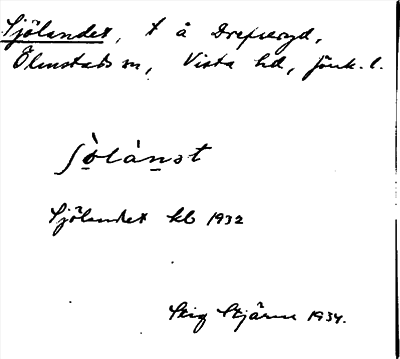 Sjölandet, t å Drefseryd,
Ölmstads sn, Vista hd, Jönk. l.
ʃö̀lànət
Sjölandet kb 1932
Stig Stjärne 1934.